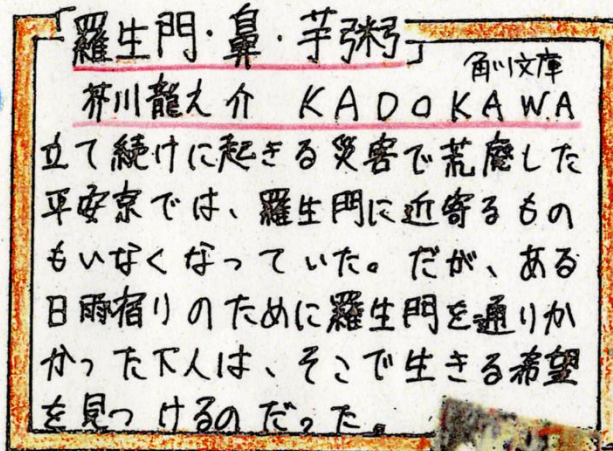 「羅生門・鼻・芋粥」
角川文庫
芥川龍之介 KADOKAWA
立て続けに起きる災害で荒廃した
平安京では、羅生門に近寄るもの
もいなくなっていた。だが、ある
日雨宿りのために羅生門を通りか
かった下人は、そこで生きる希望
を見つけるのだった。